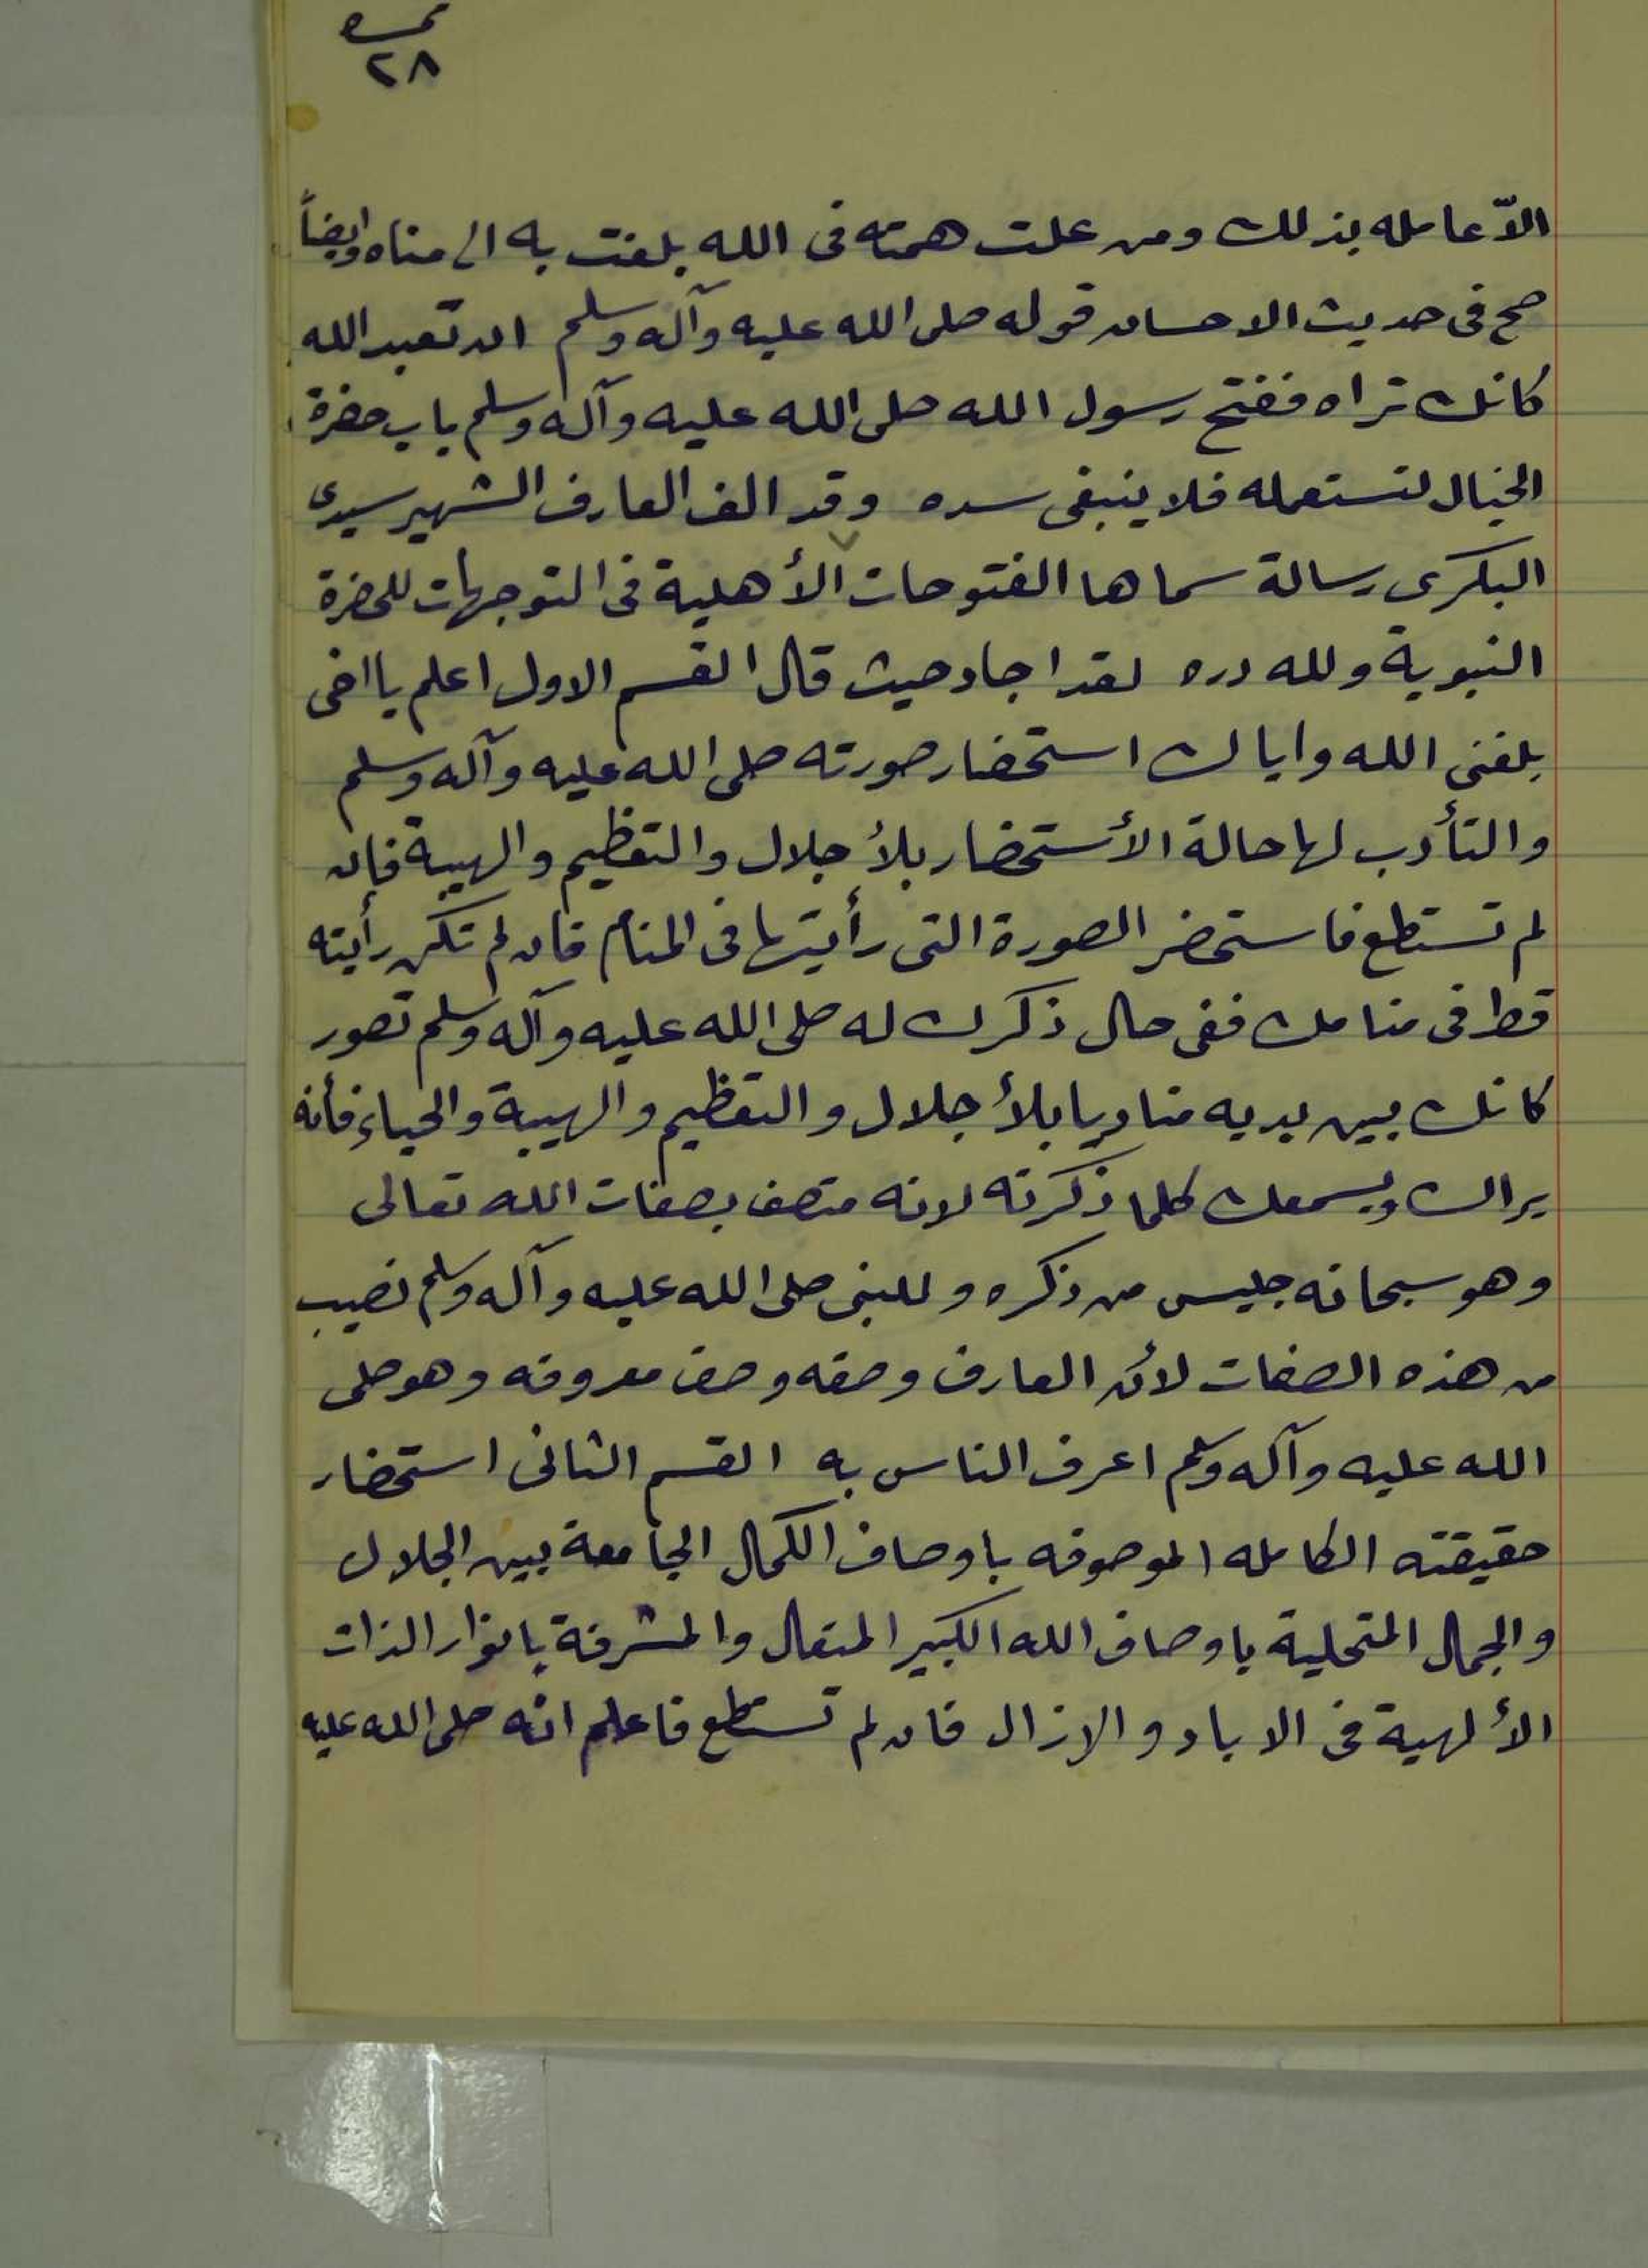 ٢٨
الاّ عامله بذلك ومن علت همته فى الله بلغت به الى مناه وايضاً
صح فى حديث الاحسان قوله صلى الله عليه وآله وسلم ان تعبد الله
كانك تراه ففتح رسول الله صلى الله عليه وآله وسلم باب حضرة
الخيال لتستعمله فلا ينبغى سده وقد الف العارف الشهير سيدى
البكرى رسالة سماها الفتوحات الأهلية فى التوجهات للحضرة
النبوية ولله دره لقد اجاد حيث قال القسم الاول اعلم يا اخى
بلغنى الله واياك استحضار صورته صلى الله عليه وآله وسلم
والتأدب لها حالة الأستحضار بلأجلال والتعظيم والهيبة فإن
لم تستطع فاستحضر الصورة التى رأيتها فى المنام فان لم تكن رأيته
قط فى منامك ففى حال ذكرك له صلى الله عليه وآله وسلم تصور
كانك بين يديه متاديا بلأجلال والتعظيم والهيبة والحياء فأنه
يراك ويسمعك كلما ذكرته لانه متصف بصفات الله تعالى
وهو سبحانه جليس من ذكره وللنبى صلى الله عليه وآله وسلم نصيب
من هذه الصفات لأن العارف وصفه وصف معروفه وهو صلى
الله عليه وآله وسلم اعرف الناس به القسم الثانى استحضار
حقيقته الكامله الموصوفه باوصاف الكمال الجامعة بين الجلال
والجمال المتحلية باوصاف الله الكبير المتعال والمشرفة بانوار الذات
الألهية فى الاباد والازال فان لم تستطع فاعلم انه صلى الله عليه